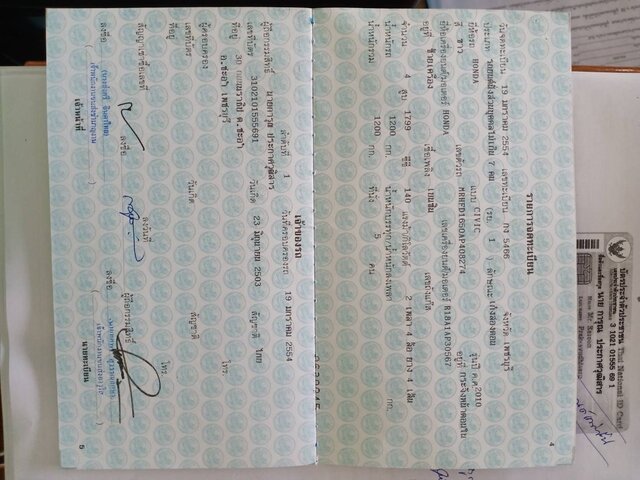 4
รายการจดทะเบียน
วันจดทะเบียน 19 มกราคม 2554 เลขทะเบียน กง 5466 จังหวัด เพชรบุรี
ประเภท รถยนต์นั่งส่วนบุคคลไม่เกิน 7 คน (รย. 1 ) ลักษณะ เก๋งสองตอน
ยี่ห้อรถ HONDA แบบ CIVIC รุ่นปี ค.ศ. 2010
สี ขาว เลขตัวรถ อยู่ที่
ยี่ห้อเครื่องยนต์/มอเตอร์ HONDA เลขเครื่องยนต์/มอเตอร์ R18A1AP30567
อยู่ที่ ซ้ายเครื่อง เชื้อเพลิง เบนซิน เลขถังแก๊ส
จำนวน 4 สูบ 1799 ซีซี 140 แรงม้า/กิโลวัตต์ 2 เพลา 4 ล้อ ยาง 4 เส้น
น้ำหนักรถ 1200 กก. น้ำหนักบรรทุก/น้ำหนักลงเพลา กก.
น้ำหนักรวม 1200 กก. ที่นั่ง 5 คน
เจ้าของรถ
ลำดับที่ 1 วันที่ครอบครองรถ 19 มกราคม 2554
ผู้ถือกรรมสิทธิ์ นายการุณ ประกาศวุฒิสาร
เลขที่บัตร 3102101555691 วันเกิด 23 มิถุนายน 2503 สัญชาติ ไทย
ที่อยู่ 30 ต.ชะอำ
อ.ชะอำ เพชรบุรี โทร.
ผู้ครอบครอง
เลขที่บัตร วันเกิด สัญชาติ
ที่อยู่ โทร.
สัญญาเช่าซื้อเลขที่ ลงวันที่ ผู้ถือกรรมสิทธิ์
ลงชื่อ ลงชื่อ
เจ้าหน้าที่ นายทะเบียน
5
บัตรประจำตัวประชาชน Thai National ID Card
3 1021 01555 69 1
นาย การุณ ประกาศวุฒิสาร
Name Mr. Karoon